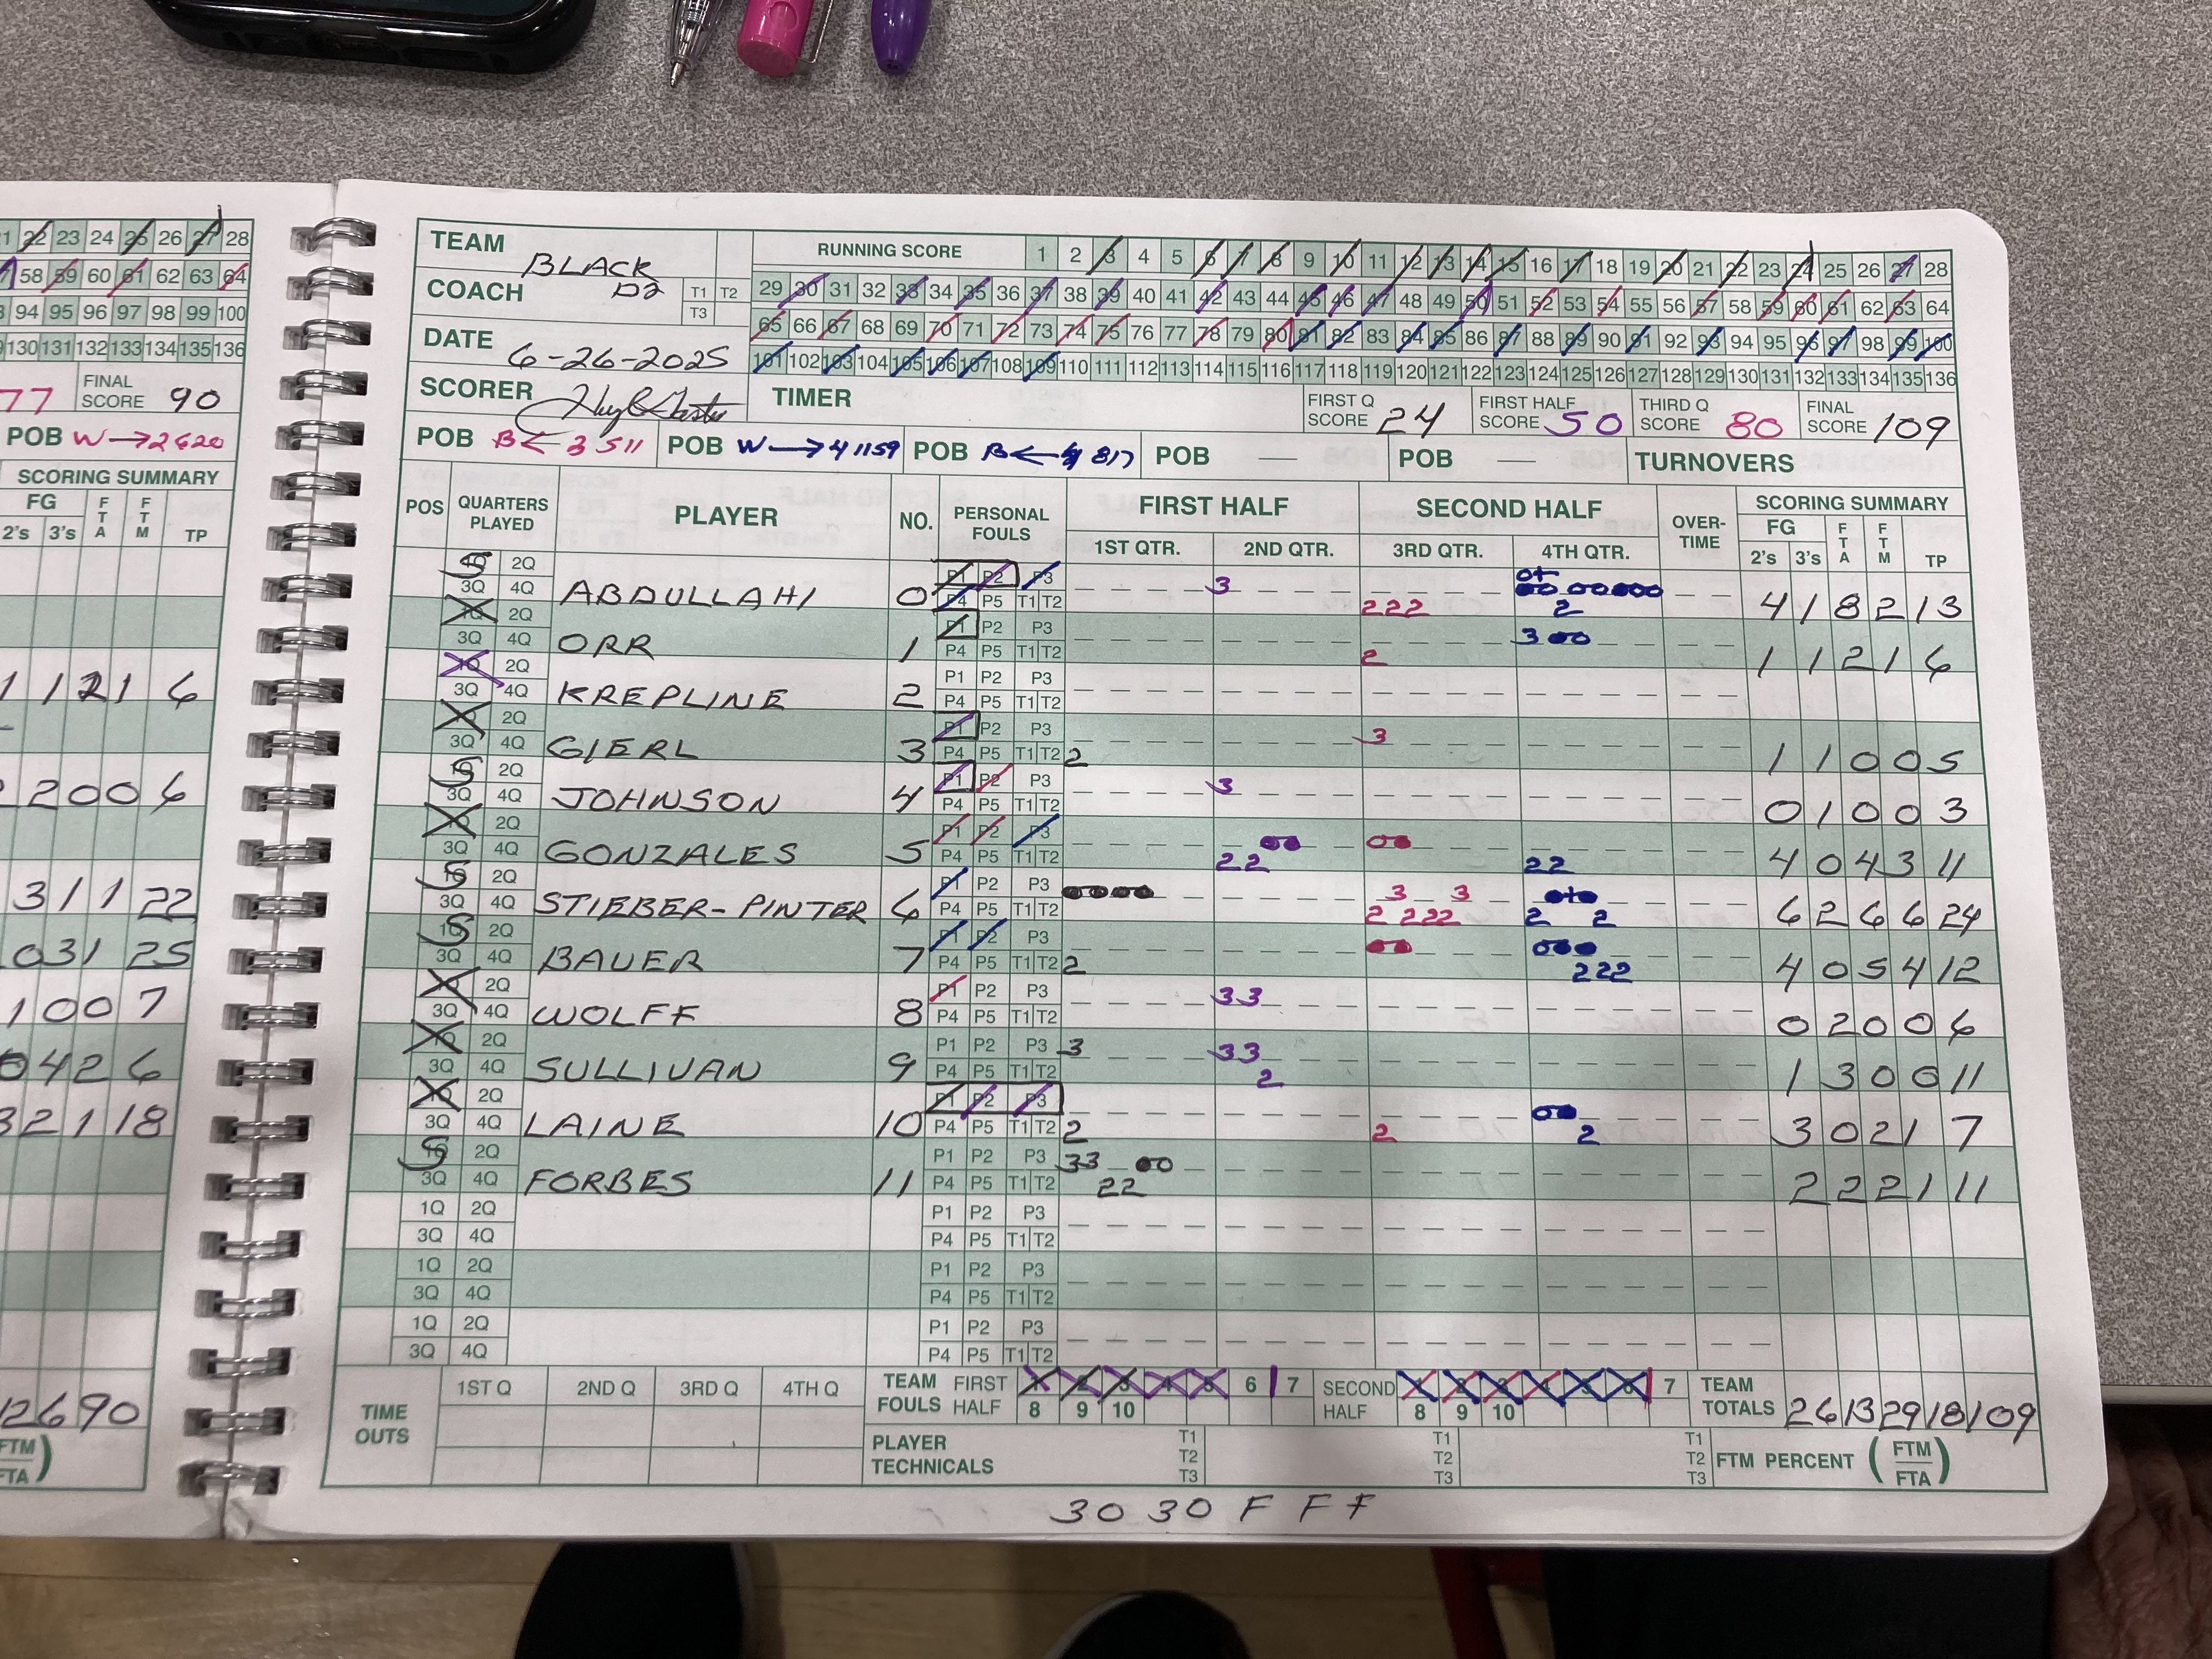 TEAM BLACK D2
RUNNING SCORE 1 2 3 4 5 6 7 8 9 10 11 12 13 14 15 16 17 18 19 20 21 22 23 24 25 26 27 28
COACH T1 T2 T3
29 30 31 32 33 34 35 36 37 38 39 40 41 42 43 44 45 46 47 48 49 50 51 52 53 54 55 56 57 58 59 60 61 62 63 64
65 66 67 68 69 70 71 72 73 74 75 76 77 78 79 80 81 82 83 84 85 86 87 88 89 90 91 92 93 94 95 96 97 98 99 100
DATE 6-26-2025
101 102 103 104 105 106 107 108 109 110 111 112 113 114 115 116 117 118 119 120 121 122 123 124 125 126 127 128 129 130 131 132 133 134 135 136
SCORER
TIMER
FIRST Q SCORE 24
FIRST HALF SCORE 50
THIRD Q SCORE 80
FINAL SCORE 109
POB B ← 3 511
POB W → 4 1159
POB B ← 4 817
POB —
POB —
TURNOVERS
POS QUARTERS PLAYED PLAYER NO. PERSONAL FOULS FIRST HALF SECOND HALF OVER-TIME SCORING SUMMARY
1ST QTR. 2ND QTR. 3RD QTR. 4TH QTR. FG 2's 3's FTA FTM TP
S 2Q 3Q 4Q ABDULLAHI 0 P1 P2 P3 P4 P5 T1 T2 3 222 2 4 1 8 2 13
1Q 2Q 3Q 4Q ORR 1 P1 P2 P3 P4 P5 T1 T2 2 3 1 1 2 1 6
1Q 2Q 3Q 4Q KREPLINE 2 P1 P2 P3 P4 P5 T1 T2
1Q 2Q 3Q 4Q GIERL 3 P1 P2 P3 P4 P5 T1 T2 2 3 1 1 0 0 5
S 2Q 3Q 4Q JOHNSON 4 P1 P2 P3 P4 P5 T1 T2 3 0 1 0 0 3
1Q 2Q 3Q 4Q GONZALES 5 P1 P2 P3 P4 P5 T1 T2 22 22 4 0 4 3 11
S 2Q 3Q 4Q STIEBER-PINTER 6 P1 P2 P3 P4 P5 T1 T2 3 3 2 222 2 2 6 2 6 6 24
S 2Q 3Q 4Q BAUER 7 P1 P2 P3 P4 P5 T1 T2 2 222 4 0 5 4 12
1Q 2Q 3Q 4Q WOLFF 8 P1 P2 P3 P4 P5 T1 T2 33 0 2 0 0 6
1Q 2Q 3Q 4Q SULLIVAN 9 P1 P2 P3 P4 P5 T1 T2 3 33 2 1 3 0 0 11
1Q 2Q 3Q 4Q LAINE 10 P1 P2 P3 P4 P5 T1 T2 2 2 2 3 0 2 1 7
S 2Q 3Q 4Q FORBES 11 P1 P2 P3 P4 P5 T1 T2 33 22 2 2 2 1 11
1Q 2Q 3Q 4Q P1 P2 P3 P4 P5 T1 T2
1Q 2Q 3Q 4Q P1 P2 P3 P4 P5 T1 T2
1Q 2Q 3Q 4Q P1 P2 P3 P4 P5 T1 T2
TIME OUTS 1ST Q 2ND Q 3RD Q 4TH Q
TEAM FOULS FIRST HALF 1 2 3 4 5 6 7 8 9 10
SECOND HALF 1 2 3 4 5 6 7 8 9 10
TEAM TOTALS 26 13 29 18 109
PLAYER TECHNICALS T1 T2 T3 T1 T2 T3 T1 T2 T3
FTM PERCENT (FTM FTA)
30 30 F F F
22 23 24 25 26 27 28
58 59 60 61 62 63 64
94 95 96 97 98 99 100
130 131 132 133 134 135 136
77 FINAL SCORE 90
POB W → 2620
SCORING SUMMARY
FG 2's 3's FTA FTM TP
1 1 2 1 6
2 0 0 6
3 1 1 22
0 3 1 25
1 0 0 7
0 4 2 6
3 2 1 18
12 6 90
FTM
FTA